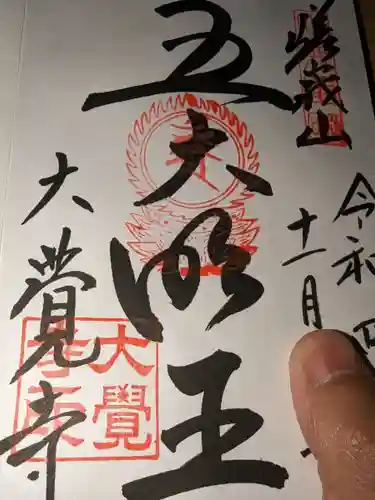 嵯峨山
令和四
十一月
五大明王
大覺寺
大覺